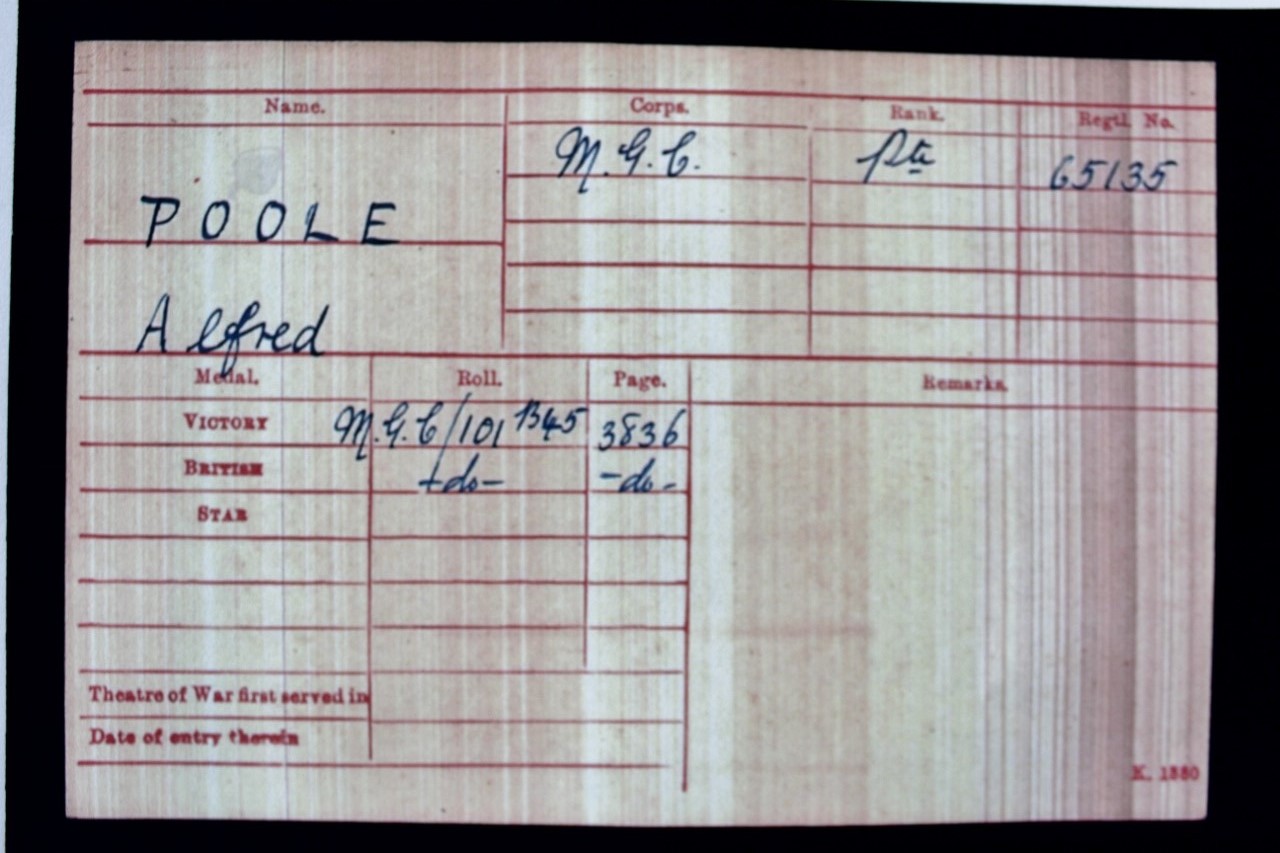 Name. Corps. Rank. Regtl. No.
M.G.C. Pte 65135
POOLE
Alfred
Medal. Roll. Page. Remarks.
VICTORY M.G.C/101 B45 3836
BRITISH -do- -do-
STAR
Theatre of War first served in
Date of entry therein
K. 1380